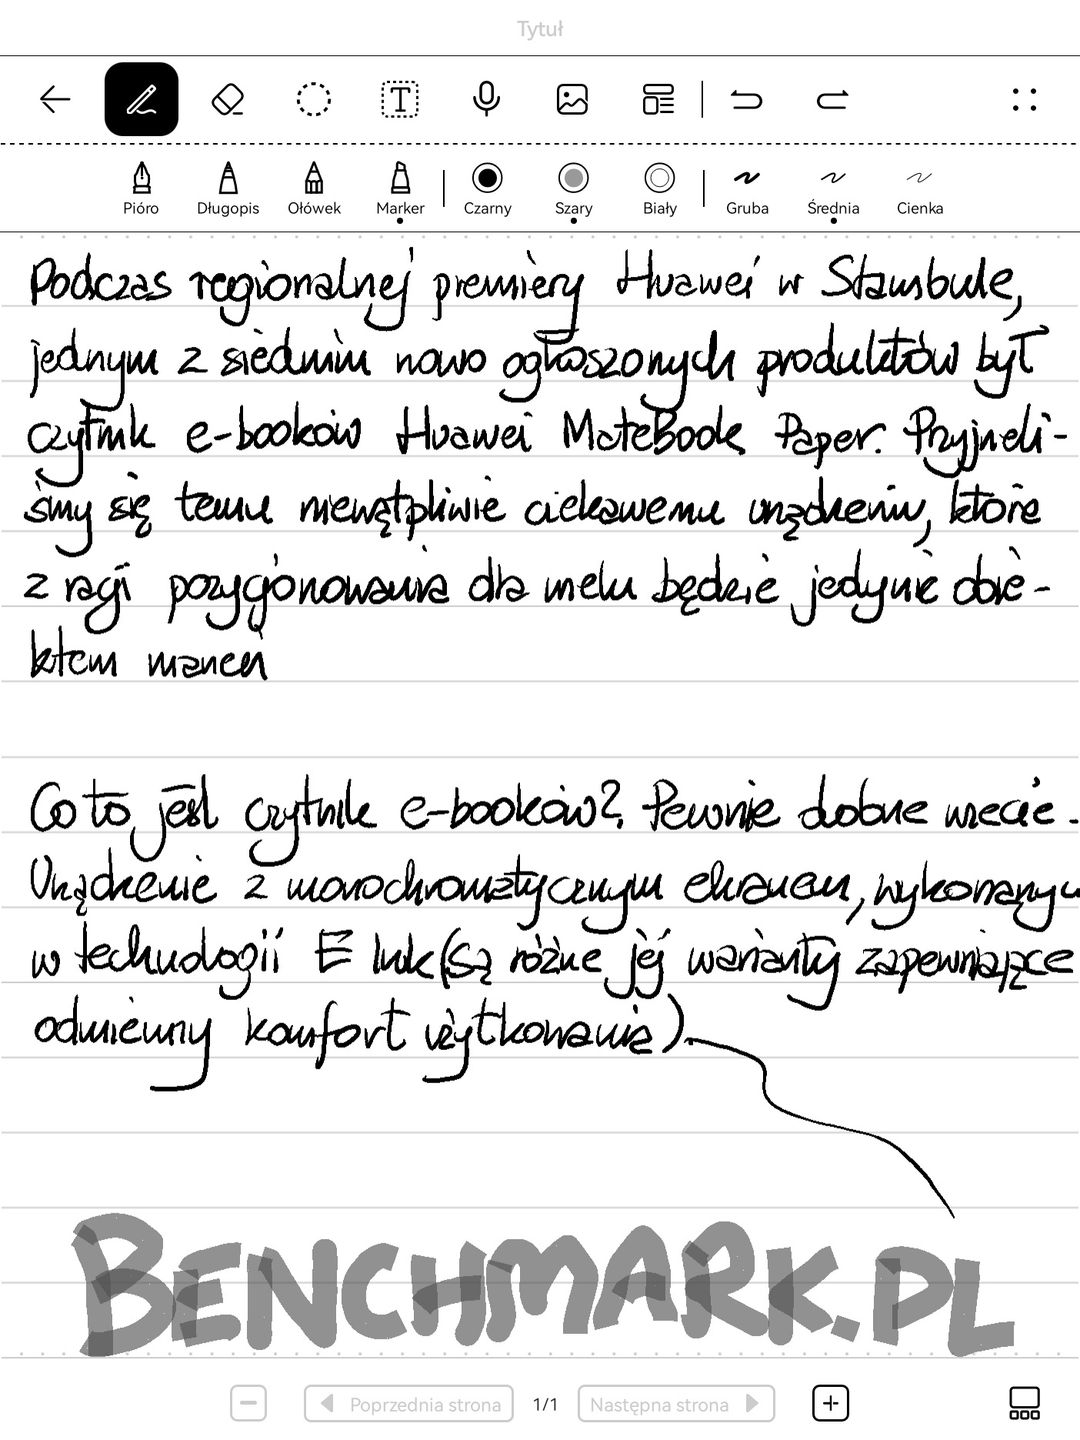 Tytuł
Pióro Długopis Ołówek Marker Czarny Szary Biały Gruba Średnia Cienka
Podczas regionalnej premiery Huawei w Stambule,
jednym z siedmiu nowo ogłoszonych produktów był
czytnik e-booków Huawei MateBook Paper. Przyjneli-
śmy się temu niewątpliwie ciekawemu urządzeniu, które
z racji pozycjonowania dla wielu będzie jedynie obie-
ktem marzeń
Co to jest czytnik e-booków? Pewnie dobrze wiecie.
Urządzenie z monochromatycznym ekranem, wykonanym
w technologii E Ink (są różne jej warianty zapewniające
odmienny komfort użytkowania).
BENCHMARK.PL
Poprzednia strona 1/1 Następna strona